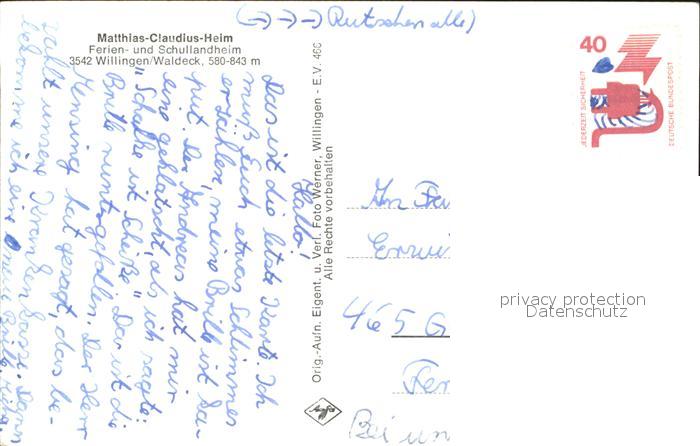 (→ → → Rutschen alle)
Matthias-Claudius-Heim
Ferien- und Schullandheim
3542 Willingen/Waldeck, 580-843 m
Hallo!
Das ist die letzte Karte. Ich
muß Euch etwas Schlimmes
erzählen, meine Brille ist ka-
put. Der Andreas hat mir
eine geklatscht, als ich sagte:
"Schalke ist Scheiße" Da ist die
Brille runtergefallen. Der Herr
Henning hat gesagt, das be-
zahlt unsere Krankenkasse. Dann
bekomme ich eine neue Brille.
Orig.-Aufn. Eigent. u. Verl. Foto Werner, Willingen - E.V. 466
Alle Rechte vorbehalten
Agfa
40
JEDERZEIT SICHERHEIT
DEUTSCHE BUNDESPOST
An Fa
Erwi
465 G
Fer
Bei un
privacy protection
Datenschutz